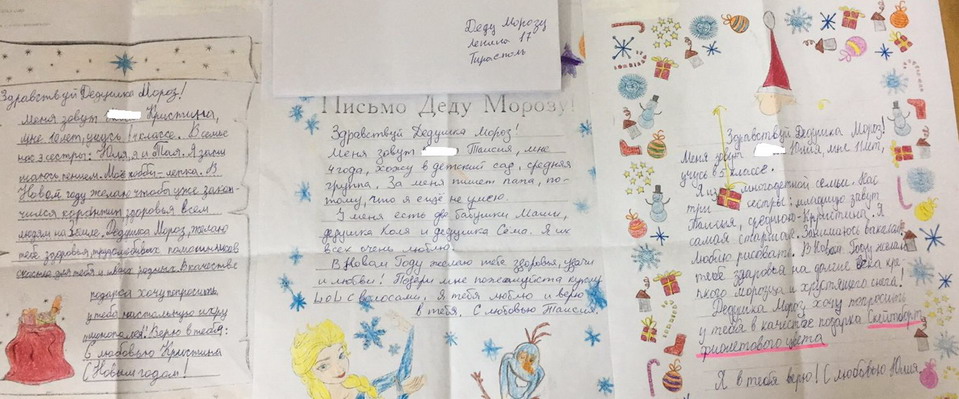 Здравствуй Дедушка Мороз!
Меня зовут Кристина,
мне 10 лет, учусь классе. В семье
нас 3 сестры: Юля, я и Тая. Я зани
маюсь пением. Моё хобби - лепка. В
Новом году желаю чтоб уже закон-
чился здоровья всем
людям на земле. Дедушка Мороз, желаю
тебе здоровья, трудолюбивых помощников
для тебя и твоих родных. В качестве
подарка хочу попросить
у тебя настольную игру
Верю в тебя!
С любовью Кристина
С Новым годом!
Деду Морозу
Ленина 17
Тирасполь
Письмо Деду Морозу!
Здравствуй Дедушка Мороз!
Меня зовут Таисия, мне
4 года, хожу в детский сад, средняя
группа. За меня пишет папа, по-
тому, что я ещё не умею.
У меня есть две бабушки Маши,
дедушка Коля и дедушка Сема. Я их
всех очень люблю.
В Новом Году желаю тебе здоровья, удачи
и любви! Подари мне пожалуйста куклу
LOL с волосами. Я тебя люблю и верю
в тебя. С любовью Таисия.
Здравствуй Дедушка Мороз!
Меня зовут Юлия, мне 11 лет,
учусь в 5 классе.
Я из многодетной семьи. Нас
три сестры: младшую зовут
Таисия, среднюю - Кристина. Я
самая старшая. Занимаюсь вокалом,
люблю рисовать. В Новом Году желаю
тебе здоровья на долгие века кре-
пкого морозца и хрустящего снега!
Дедушка Мороз, хочу попросить
у тебя в качестве подарка Скейтборд
фиолетового цвета
Я в тебя верю! С любовью Юлия